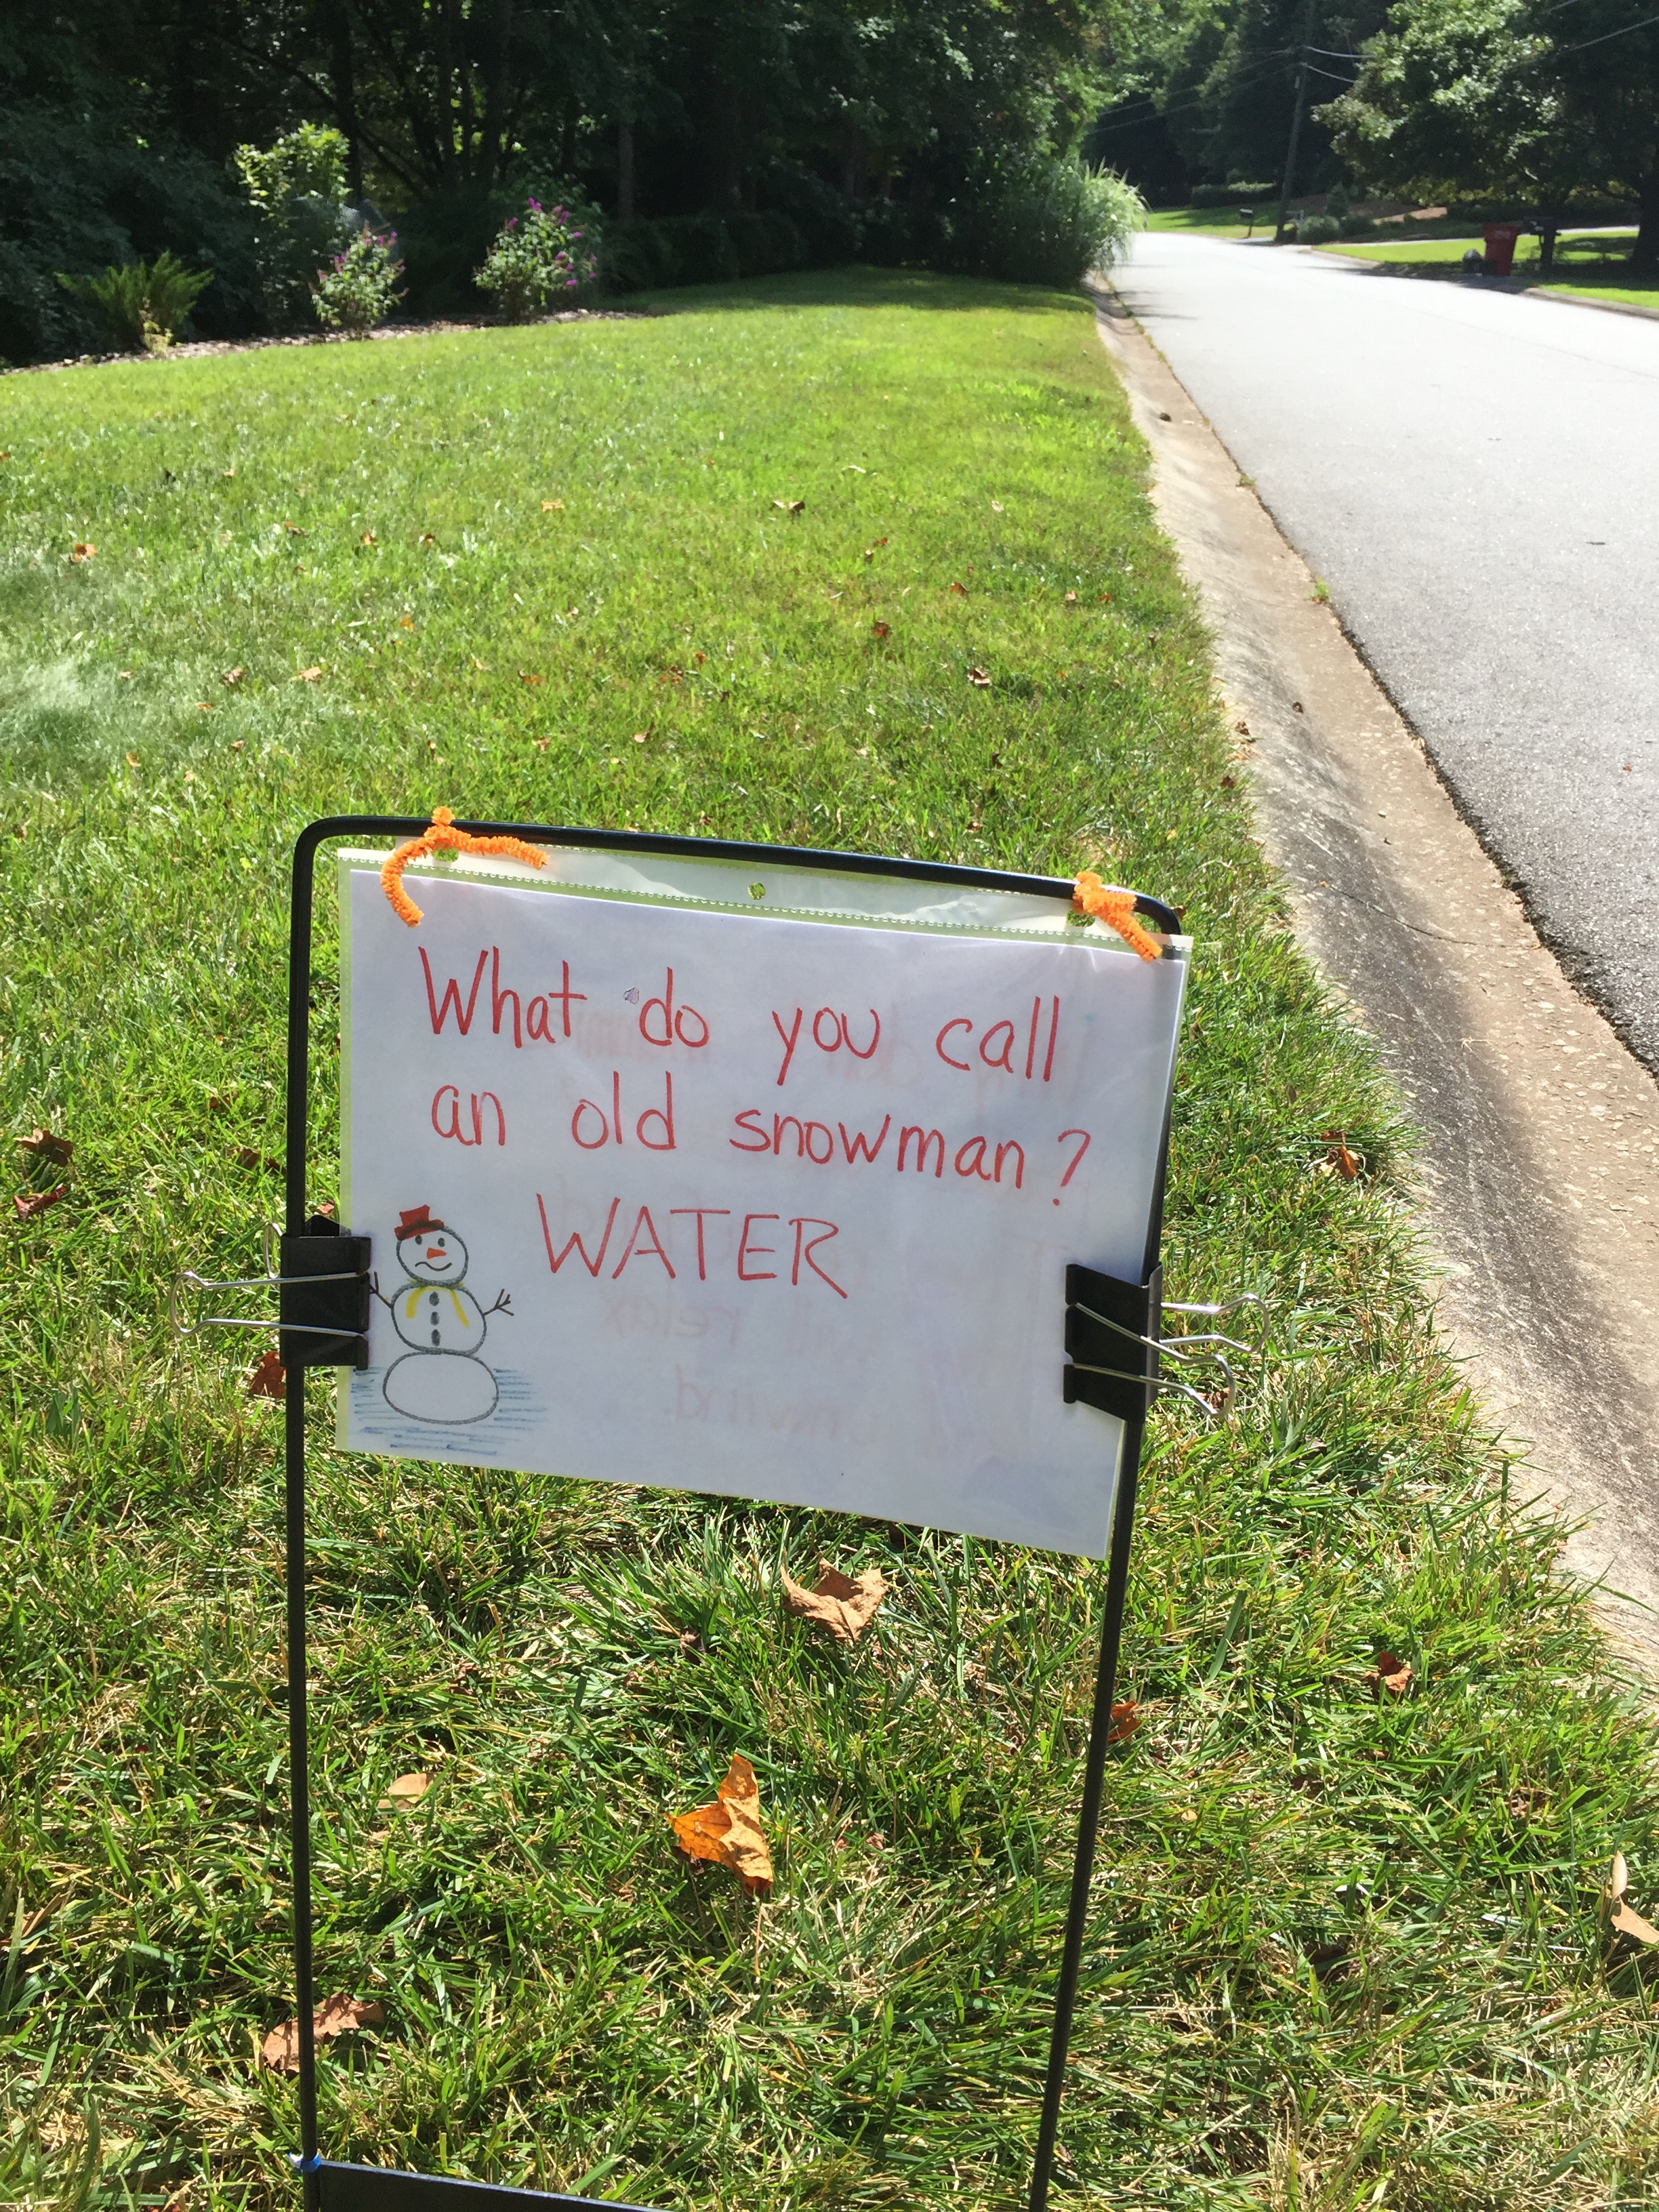 What do you call
an old snowman?
WATER